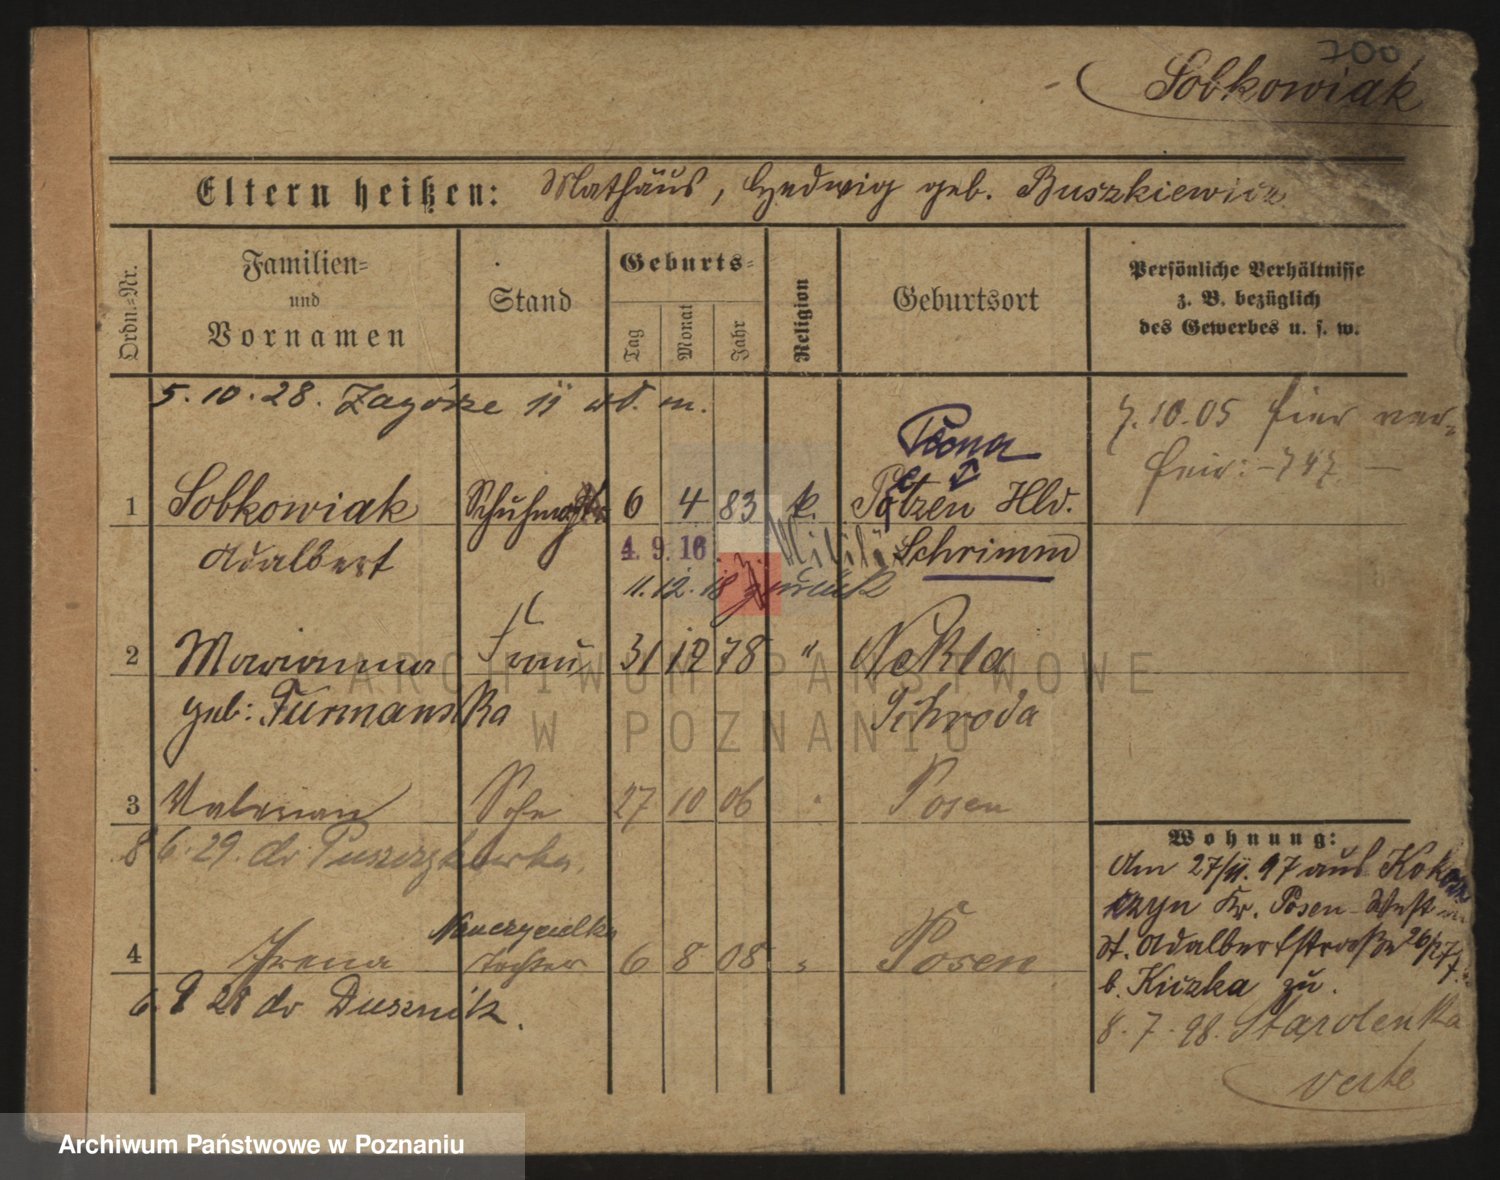 700
Sobkowiak
Eltern heißen: Mathäus, Hedwig geb. Buszkiewicz
Ordn.-Nr.
Familien-
und
Vornamen
Stand
Geburts-
Tag
Monat
Jahr
Religion
Geburtsort
Persönliche Verhältnisse
z. B. bezüglich
des Gewerbes u. s. w.
5.10.28. Zagórze 11 m.
7.10.05 hier ver-
747
1 Sobkowiak 6 4 83 k. Hld.
Adalbert 4. 9. 16 Militär Schrimm
11.12.18 zurück
2 Marianna Frau 31 12 78 " Nekla
geb: Furmanska Schroda
3 Valerian Sohn 27 10 06 " Posen
8 6.29. do Puszczykowka.
Nauczycielka
4 Irena Tochter 6 8 08 " Posen
6. 9 28 do Dusznik.
Wohnung:
Am 27/11.97 aus
Kr. Posen-West
St. Adalbertstraße 26/27
b. Kiczka zu.
8.7.98. Starolenka
verte
ARCHIWUM PAŃSTWOWE
W POZNANIU
Archiwum Państwowe w Poznaniu